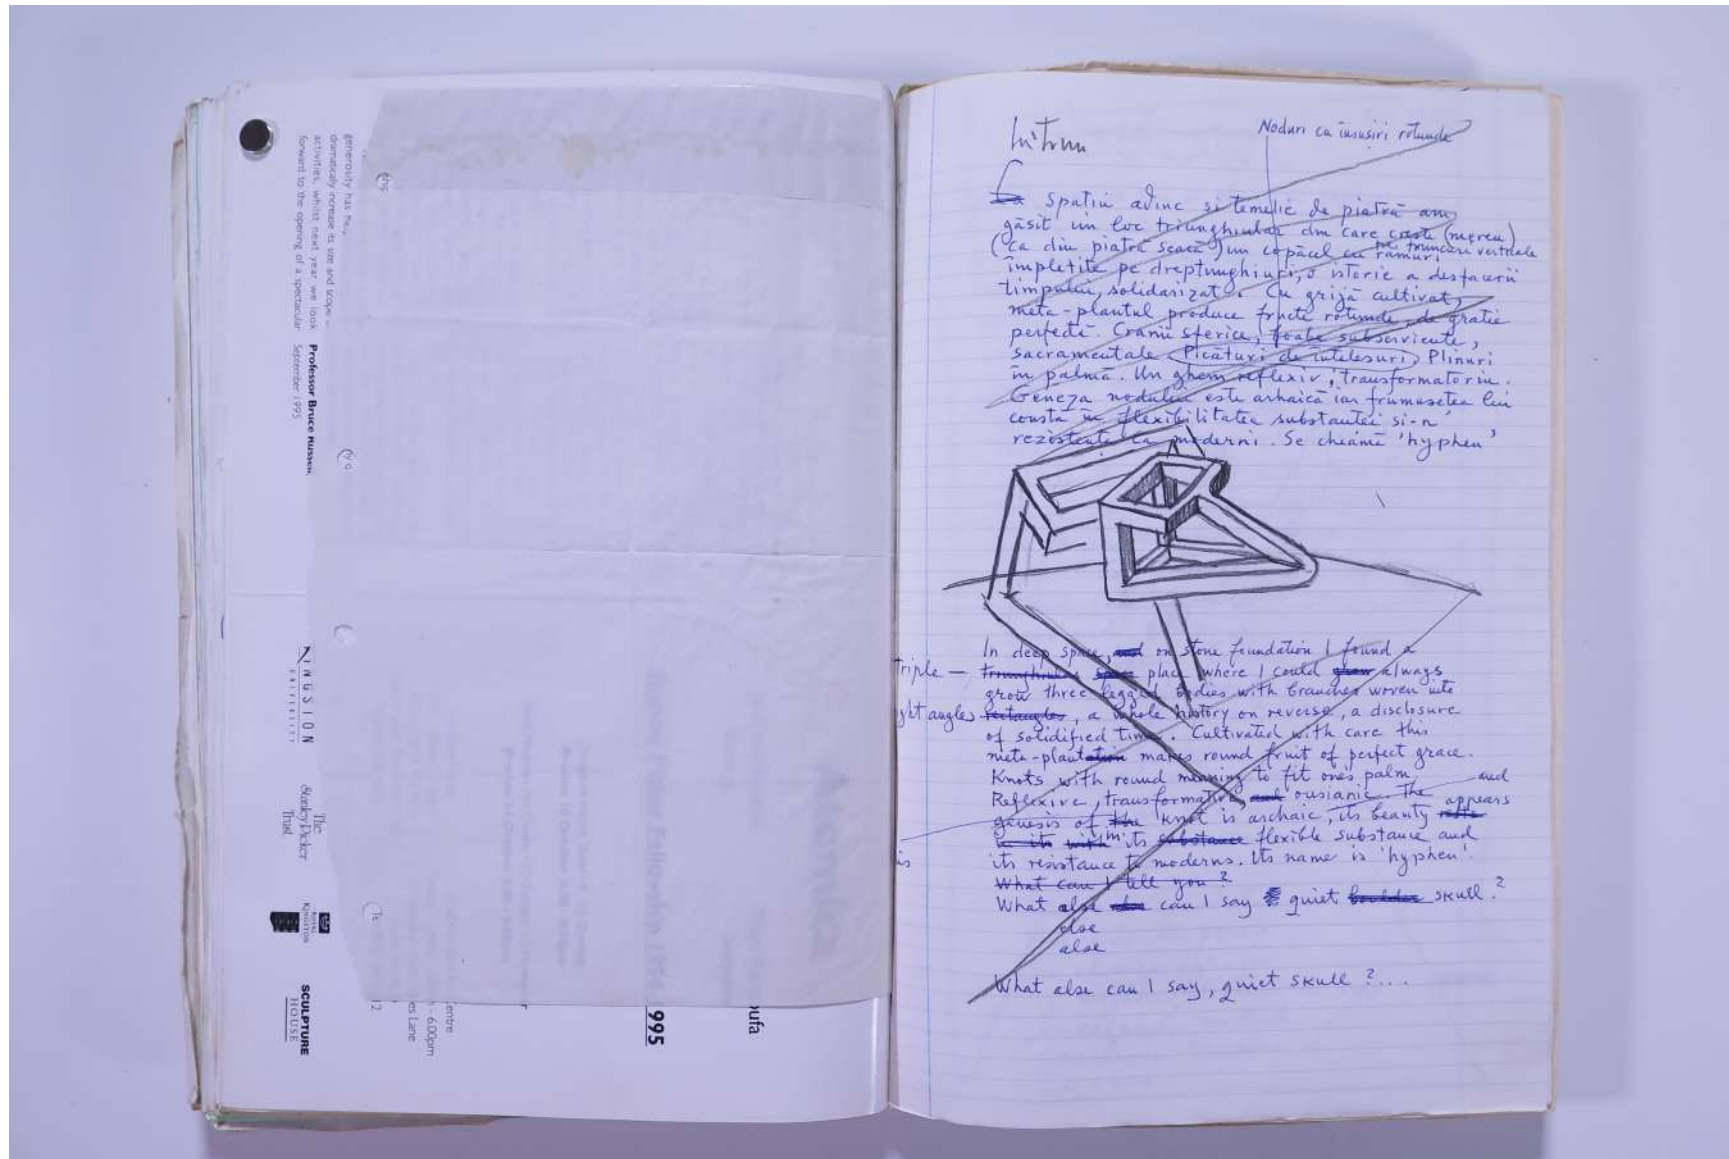 generosity has
dramatically increase its size and scope
activities, whilst next year we look
forward to the opening of a spectacular
Professor Bruce Russell,
September 1995
KINGSTON
UNIVERSITY
The
Stanley Picker
Trust
ROYAL
KINGSTON
SCULPTURE
HOUSE
entre
- 6.00pm
es Lane
12
995
oufa
Într'un
Noduri ca însușiri rotunde
La spațiu adînc si temelie de piatră am
găsit un loc triunghiular din care crește (mereu)
(ca din piatră seacă) un copăcel cu ramuri
trunchiuri verticale
împletite pe dreptunghiuri, o istorie a desfacerii
timpului, solidarizat. Cu grijă cultivat,
meta-plantul produce fructe rotunde, de gratie
perfectă. Cranii sferice, toate subserviente,
sacramentale. Picături de întelesuri. Plinuri
în palmă. Un ghem reflexiv, transformatoriu.
Geneza nodului este arhaică iar frumusetea lui
constă în flexibilitatea substantei si-n
rezistenta la moderni. Se cheamă 'hyphen'
In deep space, and on stone foundation I found a
triple — triunghiular space place where I could grow always
grow three legged bodies with branches woven into
ght angles rectangles, a whole history on reverse, a disclosure
of solidified time. Cultivated with care this
meta-plantation makes round fruit of perfect grace.
Knots with round meaning to fit ones palm,
and
Reflexive, transformative, and ousianic. The
genesis of the knot is archaic, its beauty appears
in its with in its substance flexible substance and
is
its resistance to moderns. Its name is 'hyphen'.
What can I tell you?
What else can I say quiet boulder skull?
else
else
What else can I say, quiet skull?...